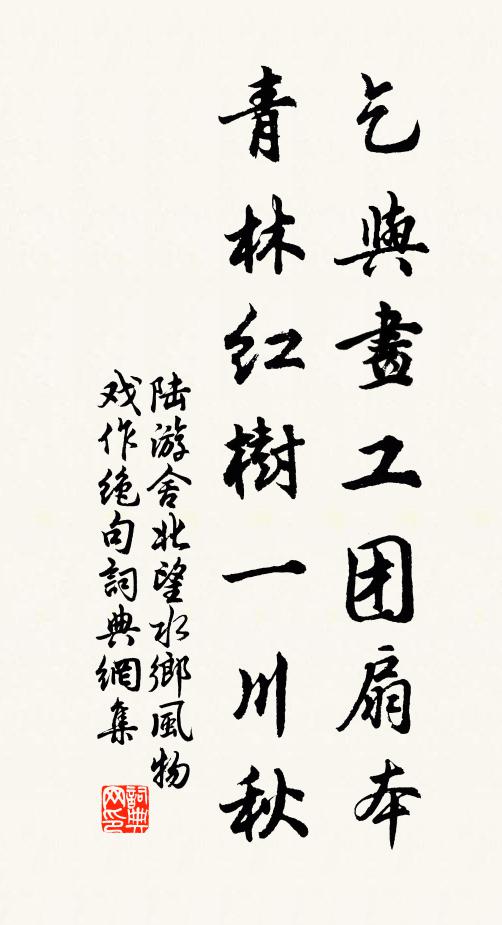 乞與畫工团扇本
青林红樹一川秋
陆游舍北望水鄉風物
戏作绝句詞典網集
詞典网印